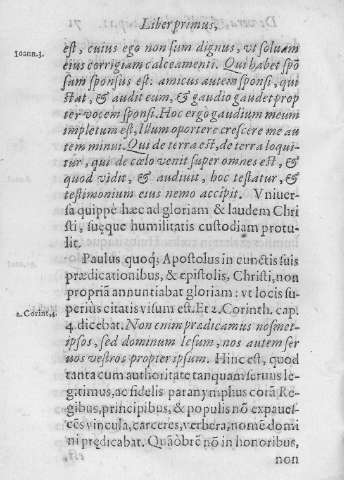 Liber primus,
Ioann.3.
est, cuius ego non sum dignus, vt soluam
eius corrigiam calceamenti. Qui habet spō
sam sponsus est: amicus autem sponsi, qui
stat, & audit eum, & gaudio gaudet prop
ter vocem sponsi. Hoc ergo gaudium meum
impletum est, Illum oportere crescere me au
tem minui. Qui de terra est, de terra loqui
tur, qui de cœlo venit super omnes est, &
quod vidit, & audiuit, hoc testatur, &
testimonium eius nemo accipit. Vniuer
sa quippè hæc ad gloriam & laudem Chri
sti, suęque humilitatis custodiam protu
lit.
Paulus quoq; Apostolus in cunctis suis
prædicationibus, & epistolis, Christi, non
propriā annuntiabat gloriam: vt locis su
perius citatis visum est. Et 2. Corinth. cap.
2. Corint. 4.
4. dicebat. Non enim prædicamus nosmet-
ipsos, sed dominum Iesum, nos autem ser
uos vestros propter ipsum. Hinc est, quod
tanta cum authoritate tanquam seruus le-
gitimus, ac fidelis paranymphus corā Re-
gibus, principibus, & populis nō expaues-
cēs vincula, carceres, verbera, nomē domi
ni prędicabat. Quāobrē nō in honoribus,
non